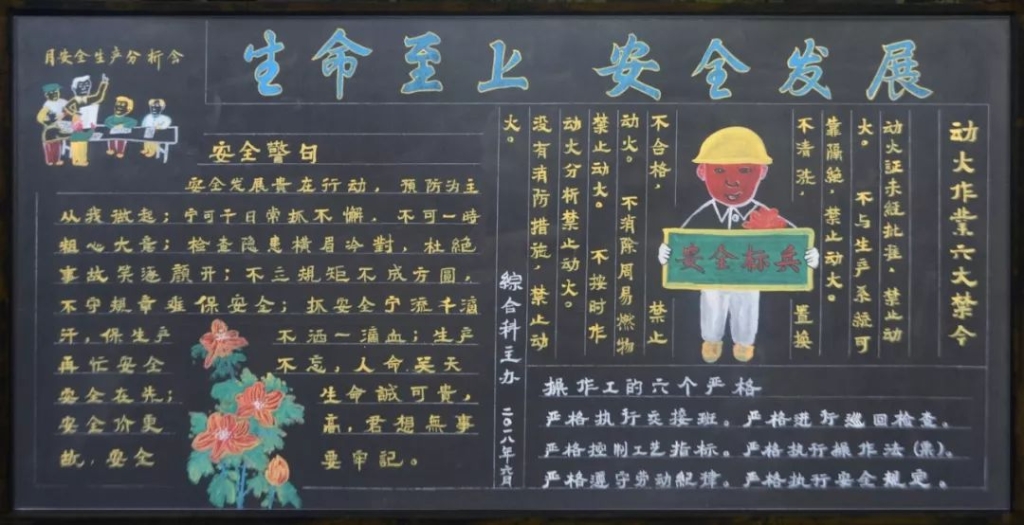 生命至上 安全发展
月安全生产分析会
安全警句
安全发展貴在行动, 預防为主
从我做起; 宁可千日常抓不懈, 不可一時
粗心大意; 检查隐患横眉冷對, 杜絕
事故笑逐颜开; 不三規矩不成方圆,
不守规章难保安全; 抓安全宁流千滴
汗, 保生产 不洒一滴血; 生产
再忙安全 不忘, 人命关天
安全在先; 生命誠可貴,
安全价更 高, 君想無事
故, 安全 要牢記。
动火作業六大禁令
动火証未經批准, 禁止动
火。 不与生产系統可
靠隔絕, 禁止动火。
不清洗, 置换
不合格, 禁止
动火。 不消除周易燃物
禁止动火。 不按时作
动火分析禁止动火。
没有消防措施, 禁止动
火。
安全标兵
綜合科主办 二〇一八年六月
操作工的六个严格
严格执行交接班。 严格进行巡回检查。
严格控制工艺指标。 严格执行操作法(票)。
严格遵守劳动紀律。 严格执行安全規定。